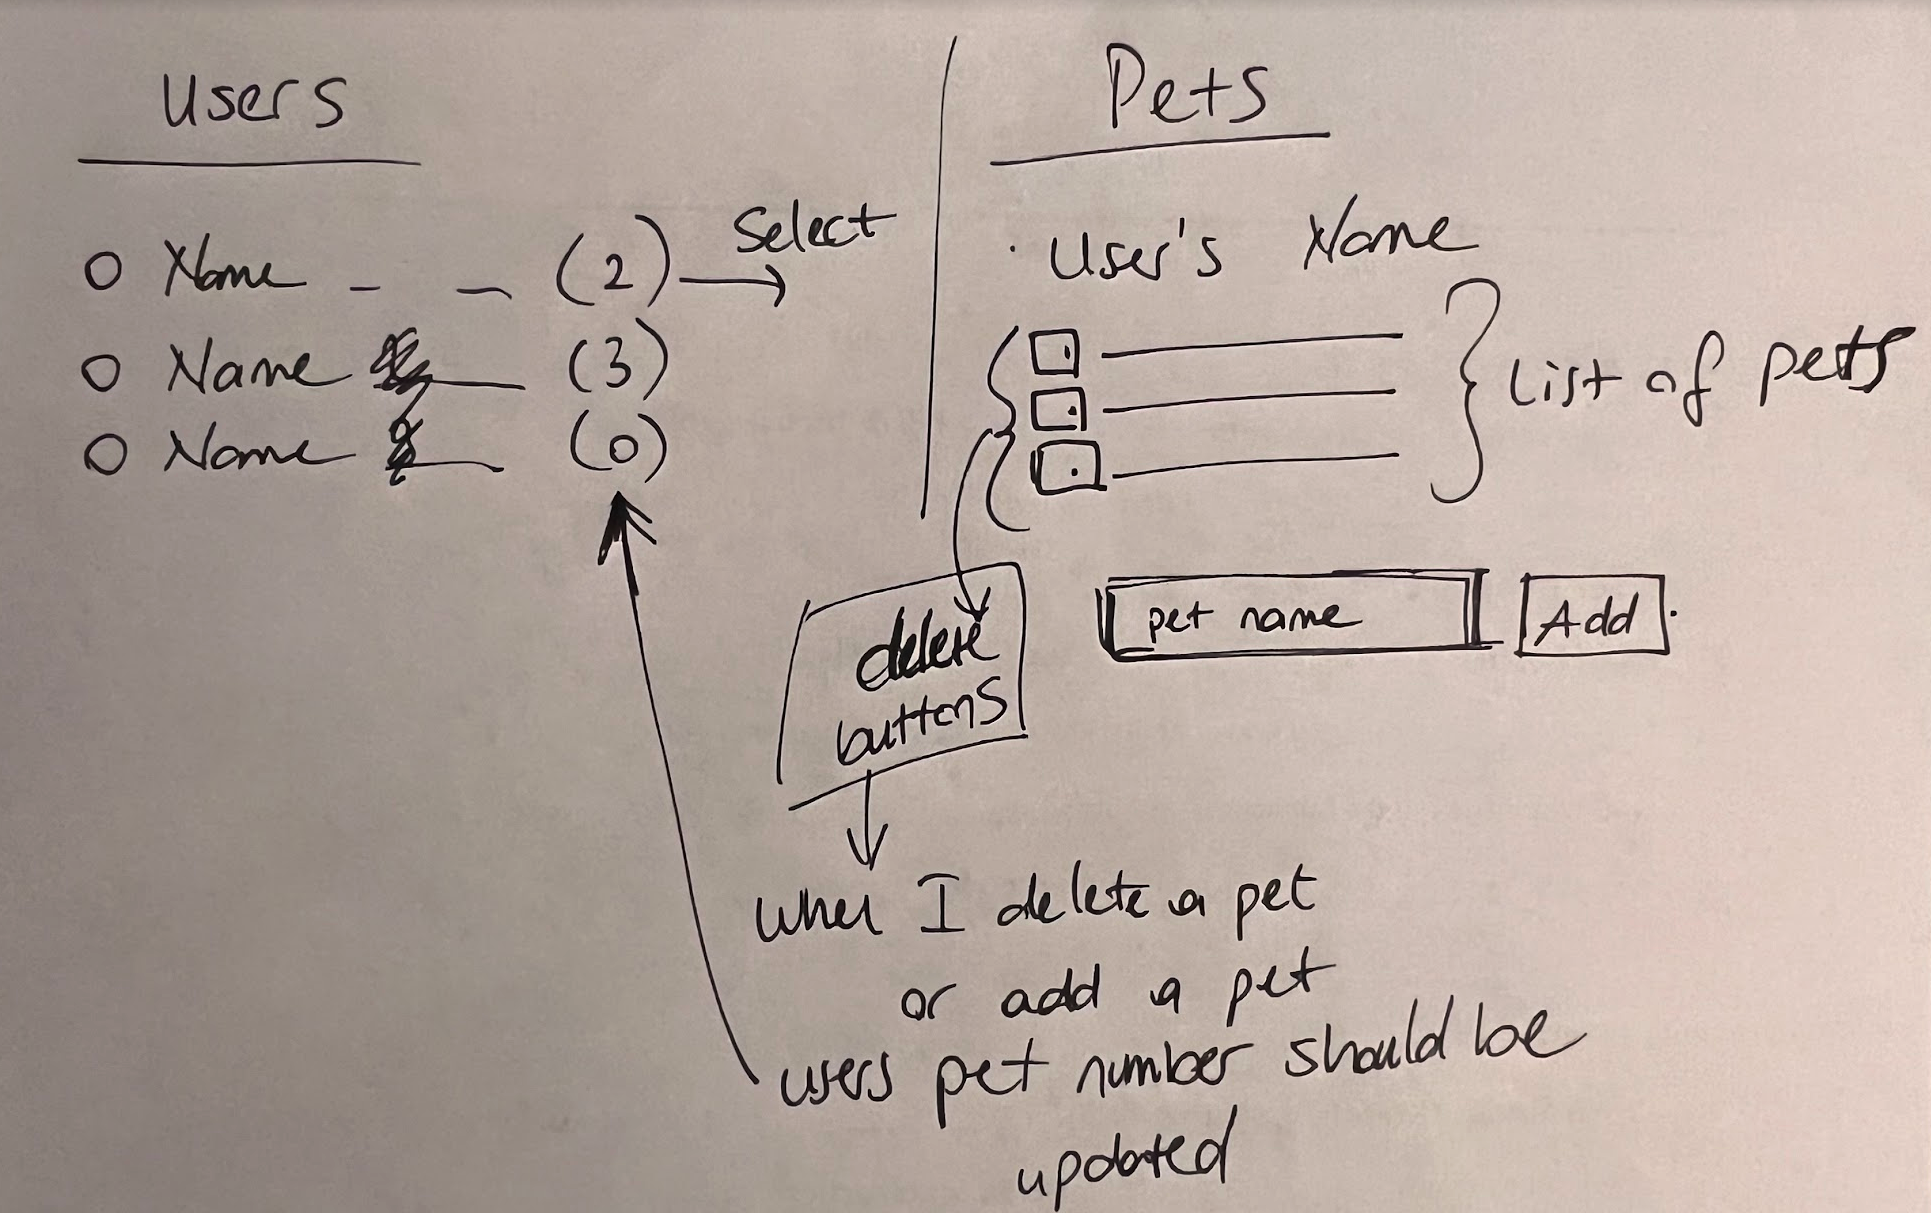 Users
Name (2) Select
Name (3)
Name (0)
Pets
User's Name
List of pets
pet name Add
delete
buttons
when I delete a pet
or add a pet
users pet number should be
updated